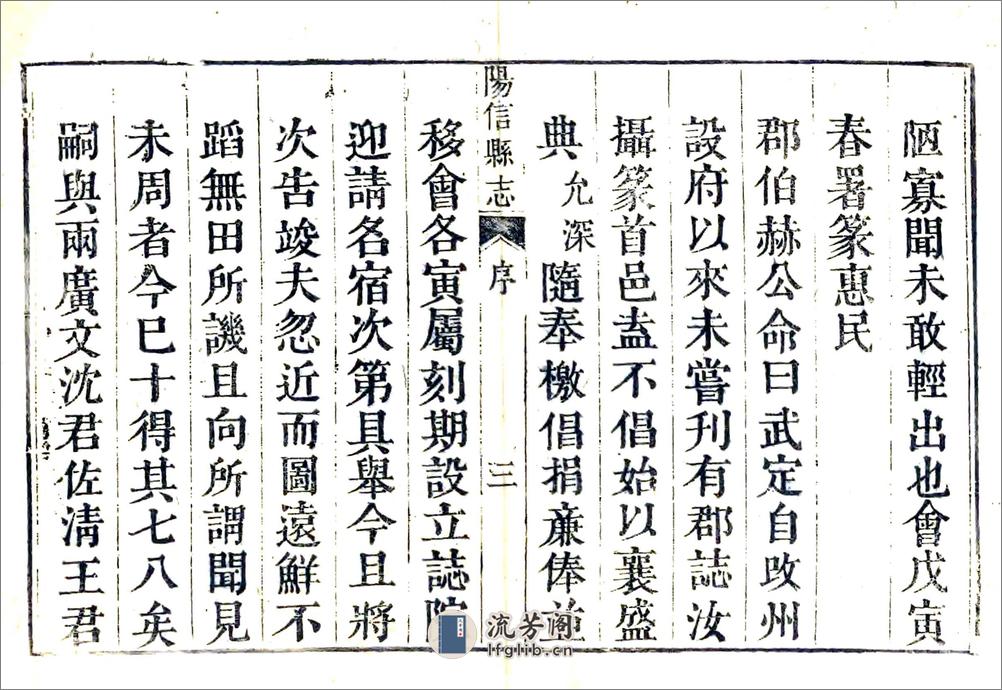 陋寡聞未敢輕出也會戊寅
春署篆惠民
郡伯赫公命曰武定自改州
設府以來未嘗刊有郡誌汝
攝篆首邑盍不倡始以襄盛
典允深隨奉檄倡捐廉俸並
陽信縣志 序 三
移會各寅屬刻期設立誌院
迎請名宿次第具舉今且將
次告竣夫忽近而圖遠鮮不
蹈無田所譏且向所謂聞見
未周者今巳十得其七八矣
嗣與兩廣文沈君佐清王君
流芳阁
lfglib.cn